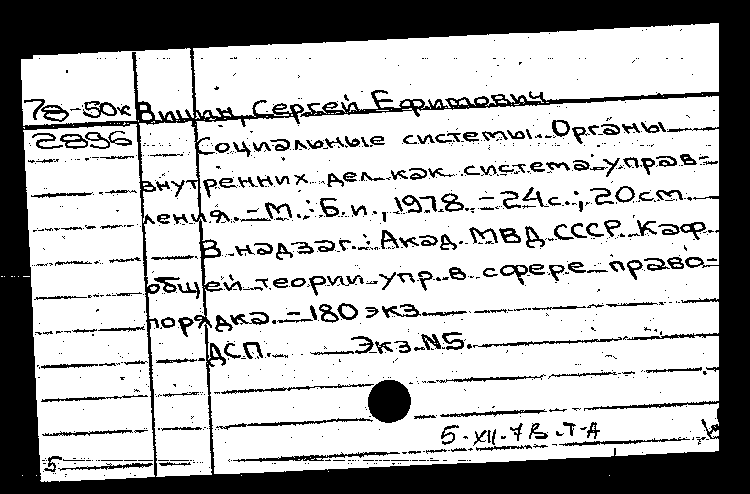 78-50к Вицин, Сергей Ефимович
2896 Социальные системы. Органы
внутренних дел как система управ-
ления. - М.: Б.и., 1978. - 24с.; 20см.
В надзаг.: Акад. МВД СССР. Каф.
общей теории упр. в сфере право-
порядка. - 180 экз.
ДСП. Экз. №5.
5.XII.78. Т-А
5